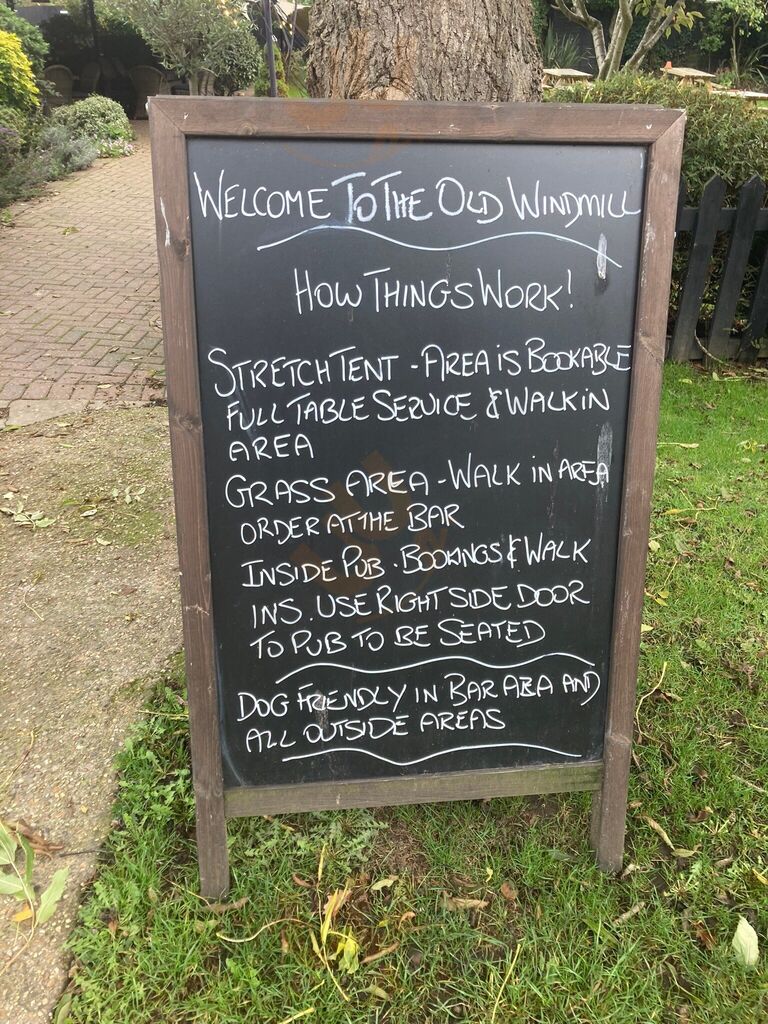 WELCOME TO THE OLD WINDMILL
HOW THINGS WORK!
STRETCH TENT - AREA IS BOOKABLE
FULL TABLE SERVICE & WALK IN
AREA
GRASS AREA - WALK IN AREA
ORDER AT THE BAR
INSIDE PUB. BOOKINGS & WALK
INS. USE RIGHT SIDE DOOR
TO PUB TO BE SEATED
DOG FRIENDLY IN BAR AREA AND
ALL OUTSIDE AREAS